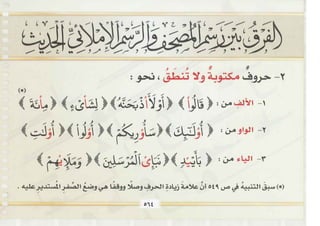 الفرق بين رسم المصحف والرسم الإملائي الحديث
٢- حروفٌ مكتوبةٌ ولا تُنطَقُ ، نحو :
١- الألف من : ﴿قَالُوا۟﴾ ﴿أَوْ لَأَا۟ذْبَحَنَّهُ﴾ ﴿لِشَا۟ىْءٍ﴾ ﴿مِا۟ئَةَ﴾ (٥)
٢- الواو من : ﴿أُو۟لَـٰٓئِكَ﴾ ﴿سَأُو۟رِيكُمْ﴾ ﴿أُو۟لُوا۟﴾ ﴿أُو۟لَـٰتِ﴾
٣- الياء من : ﴿بِأَيْي۟دٍ﴾ ﴿نَبَإِى۟ الْمُرْسَلِينَ﴾ ﴿وَمَلَإِي۟هِمْ﴾
(٥) سبق التنبيه في ص ٥٤٩ أنَّ علامةَ زيادةِ الحرفِ وصلًا ووقفًا هي وضعُ الصِّفرِ المستديرِ عليه .
٥٦٤